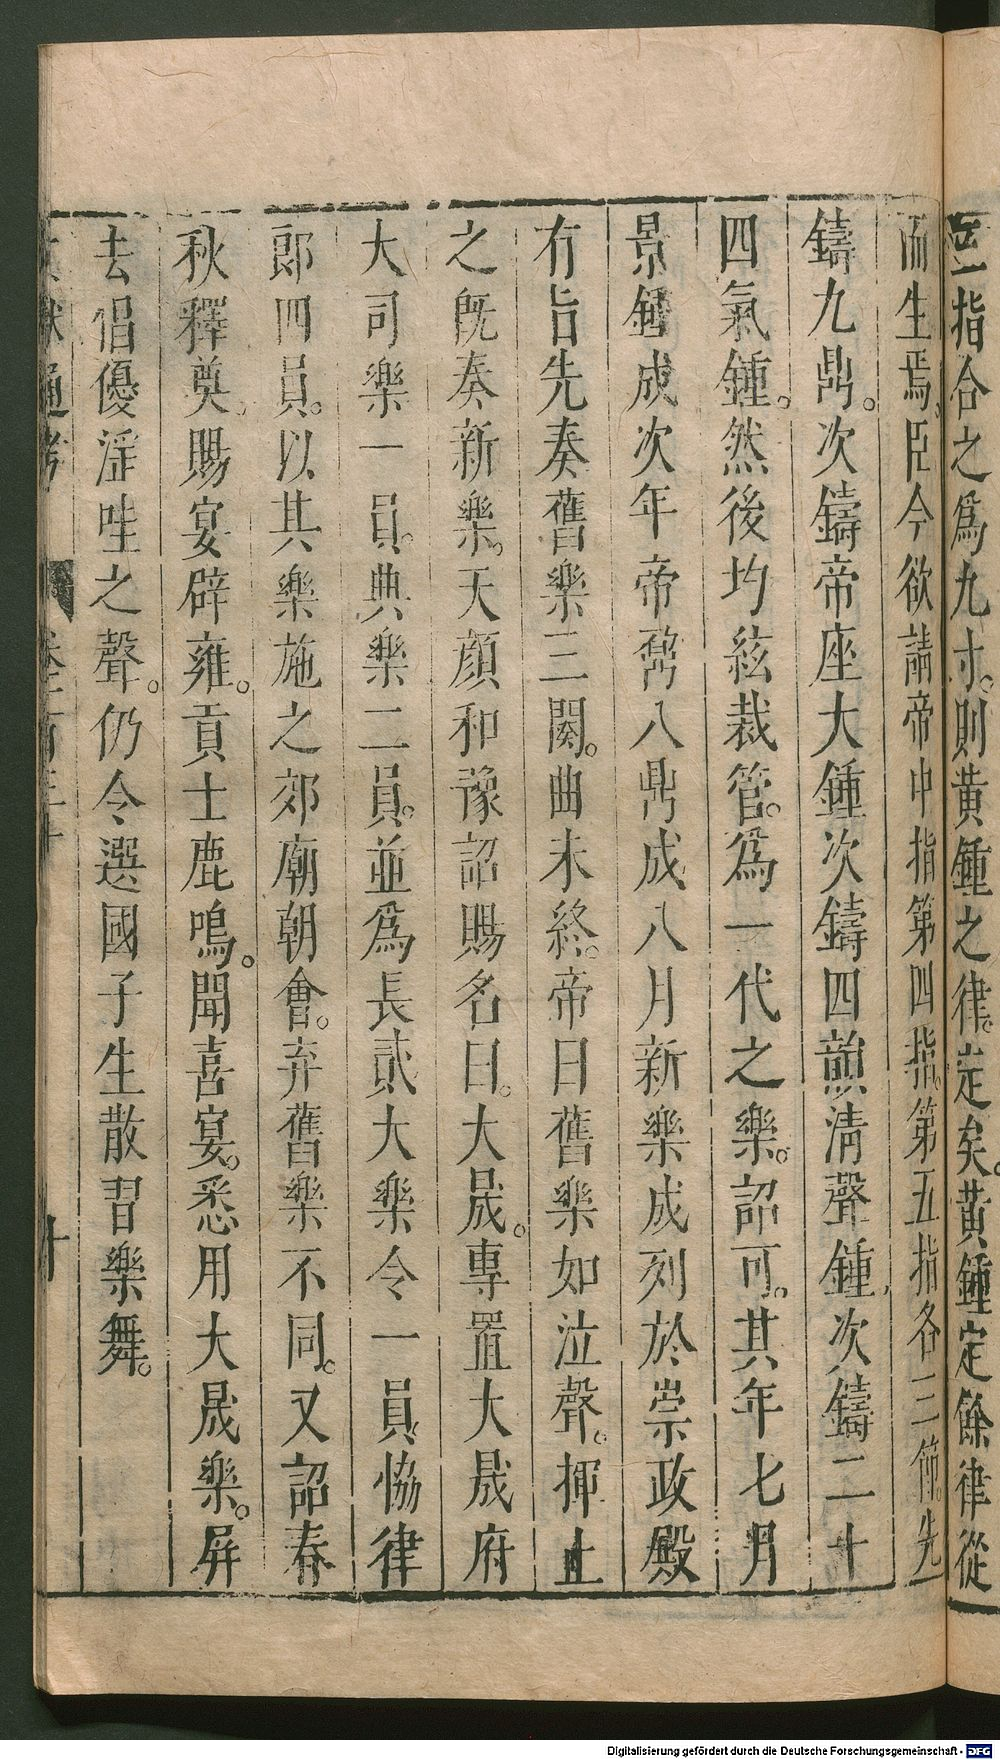 三指合之爲九寸。則黄鍾之律。定矣。黄鍾定餘律從
而生焉。臣今欲請帝中指第四指。第五指各三節。先
鑄九鼎。次鑄帝座大鍾次鑄四韻淸聲鍾次鑄二十
四氣鍾。然後均絃裁管。爲一代之樂。詔可。其年七月
景鍾成次年帝鼐八鼎成八月新樂成列於崇政殿
有旨先奏舊樂三闋。曲未終。帝曰舊樂如泣聲。揮止
之旣奏新樂。天顔和豫詔賜名曰。大晟。專置大晟府
大司樂一員。典樂二員。並爲長貳大樂令一員恊律
郎四員。以其樂施之郊廟朝會。弃舊樂不同。又詔春
秋釋奠。賜宴辟雍。貢士鹿鳴。聞喜宴。悉用大晟樂。屏
去倡優淫哇之聲。仍令選國子生散習樂舞。
文獻通考 卷一百三十 十
Digitalisierung gefördert durch die Deutsche Forschungsgemeinschaft - DFG